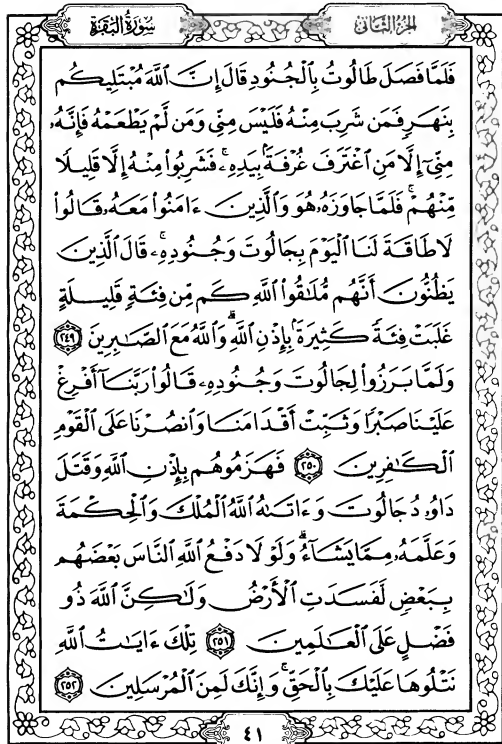 سُورَةُ البَقَرَةِ
الجزء الثاني
فَلَمَّا فَصَلَ طَالُوتُ بِٱلْجُنُودِ قَالَ إِنَّ ٱللَّهَ مُبْتَلِيكُم
بِنَهَرٍ فَمَن شَرِبَ مِنْهُ فَلَيْسَ مِنِّي وَمَن لَّمْ يَطْعَمْهُ فَإِنَّهُۥ
مِنِّيٓ إِلَّا مَنِ ٱغْتَرَفَ غُرْفَةَۢ بِيَدِهِۦۚ فَشَرِبُوا۟ مِنْهُ إِلَّا قَلِيلًا
مِّنْهُمْۚ فَلَمَّا جَاوَزَهُۥ هُوَ وَٱلَّذِينَ ءَامَنُوا۟ مَعَهُۥ قَالُوا۟
لَا طَاقَةَ لَنَا ٱلْيَوْمَ بِجَالُوتَ وَجُنُودِهِۦۚ قَالَ ٱلَّذِينَ
يَظُنُّونَ أَنَّهُم مُّلَٰقُوا۟ ٱللَّهِ كَم مِّن فِئَةٍ قَلِيلَةٍ
غَلَبَتْ فِئَةً كَثِيرَةَۢ بِإِذْنِ ٱللَّهِۗ وَٱللَّهُ مَعَ ٱلصَّٰبِرِينَ ٢٤٩
وَلَمَّا بَرَزُوا۟ لِجَالُوتَ وَجُنُودِهِۦ قَالُوا۟ رَبَّنَآ أَفْرِغْ
عَلَيْنَا صَبْرًا وَثَبِّتْ أَقْدَامَنَا وَٱنصُرْنَا عَلَى ٱلْقَوْمِ
ٱلْكَٰفِرِينَ ٢٥٠ فَهَزَمُوهُم بِإِذْنِ ٱللَّهِ وَقَتَلَ
دَاوُۥدُ جَالُوتَ وَءَاتَىٰهُ ٱللَّهُ ٱلْمُلْكَ وَٱلْحِكْمَةَ
وَعَلَّمَهُۥ مِمَّا يَشَآءُۗ وَلَوْلَا دَفْعُ ٱللَّهِ ٱلنَّاسَ بَعْضَهُم
بِبَعْضٍ لَّفَسَدَتِ ٱلْأَرْضُ وَلَٰكِنَّ ٱللَّهَ ذُو
فَضْلٍ عَلَى ٱلْعَٰلَمِينَ ٢٥١ تِلْكَ ءَايَٰتُ ٱللَّهِ
نَتْلُوهَا عَلَيْكَ بِٱلْحَقِّۚ وَإِنَّكَ لَمِنَ ٱلْمُرْسَلِينَ ٢٥٢
٤١